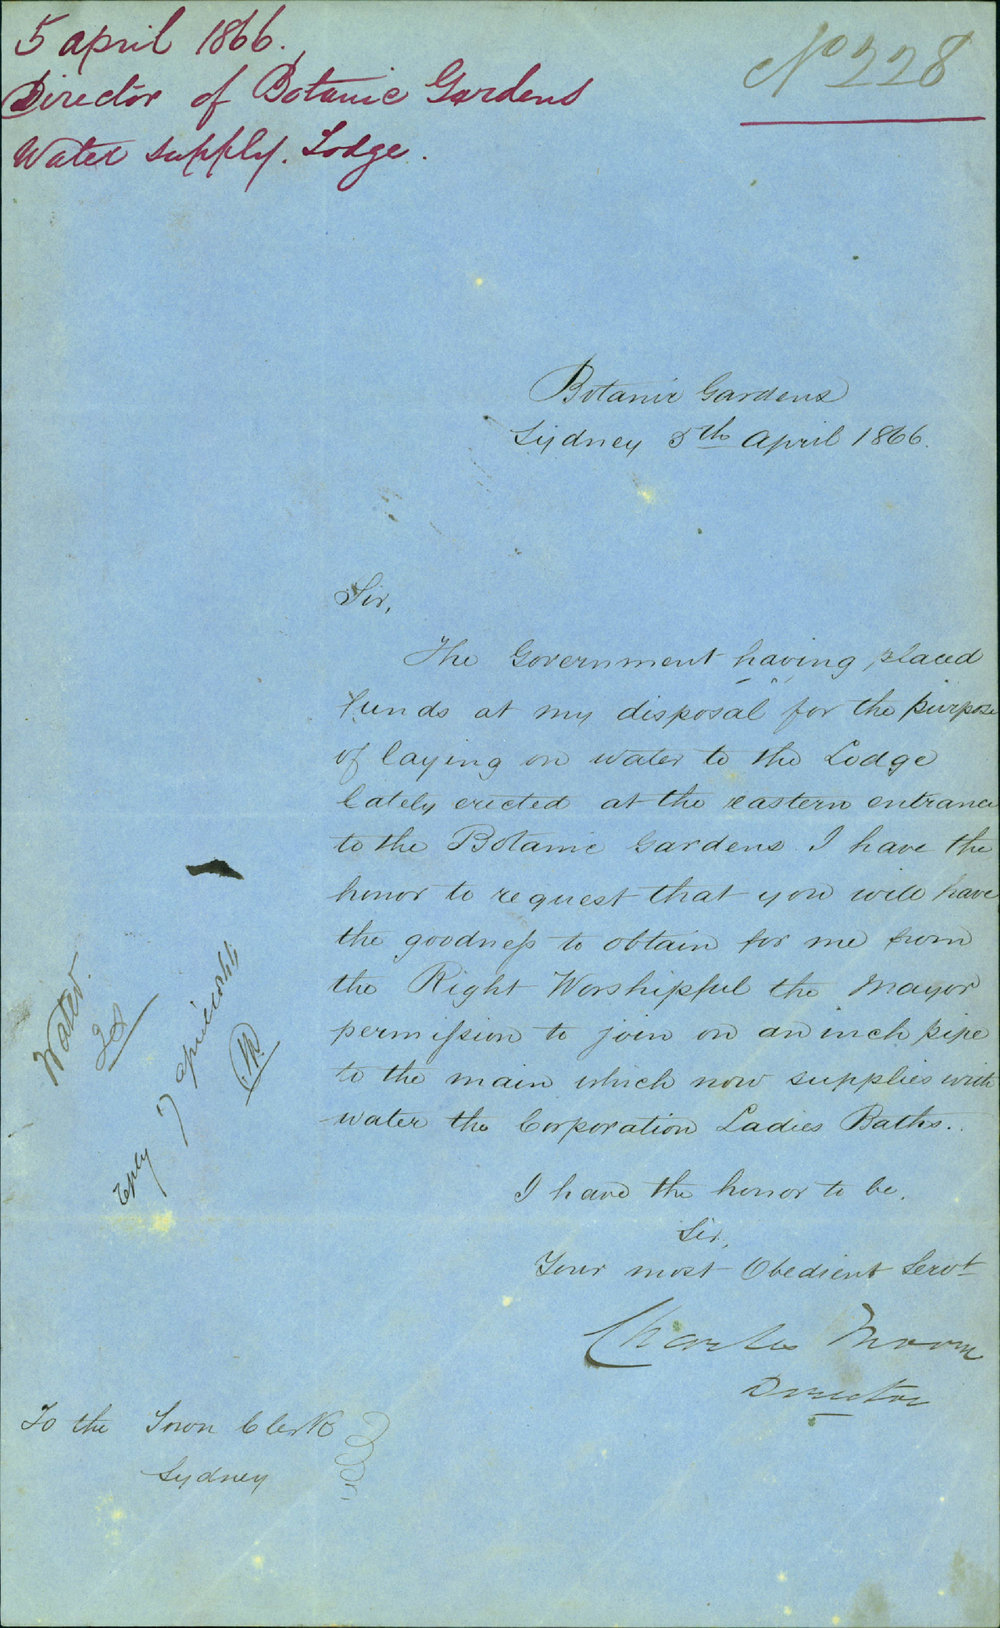 5 april 1866.
Director of Botanic Gardens
Water supply. Lodge.
No 228
Botanic Gardens
Sydney 5th April 1866.
Sir,
The Government having placed
funds at my disposal for the purpose
of laying on water to the Lodge
lately erected at the eastern entrance
to the Botanic Gardens I have the
honor to request that you will have
the goodness to obtain for me from
the Right Worshipful the Mayor
permission to join on an inch pipe
to the main which now supplies with
water the Corporation Ladies Baths.
I have the honor to be,
Sir,
Your most Obedient Servt
Charles Moore
Director
Water
7 april
To the Town Clerk
Sydney